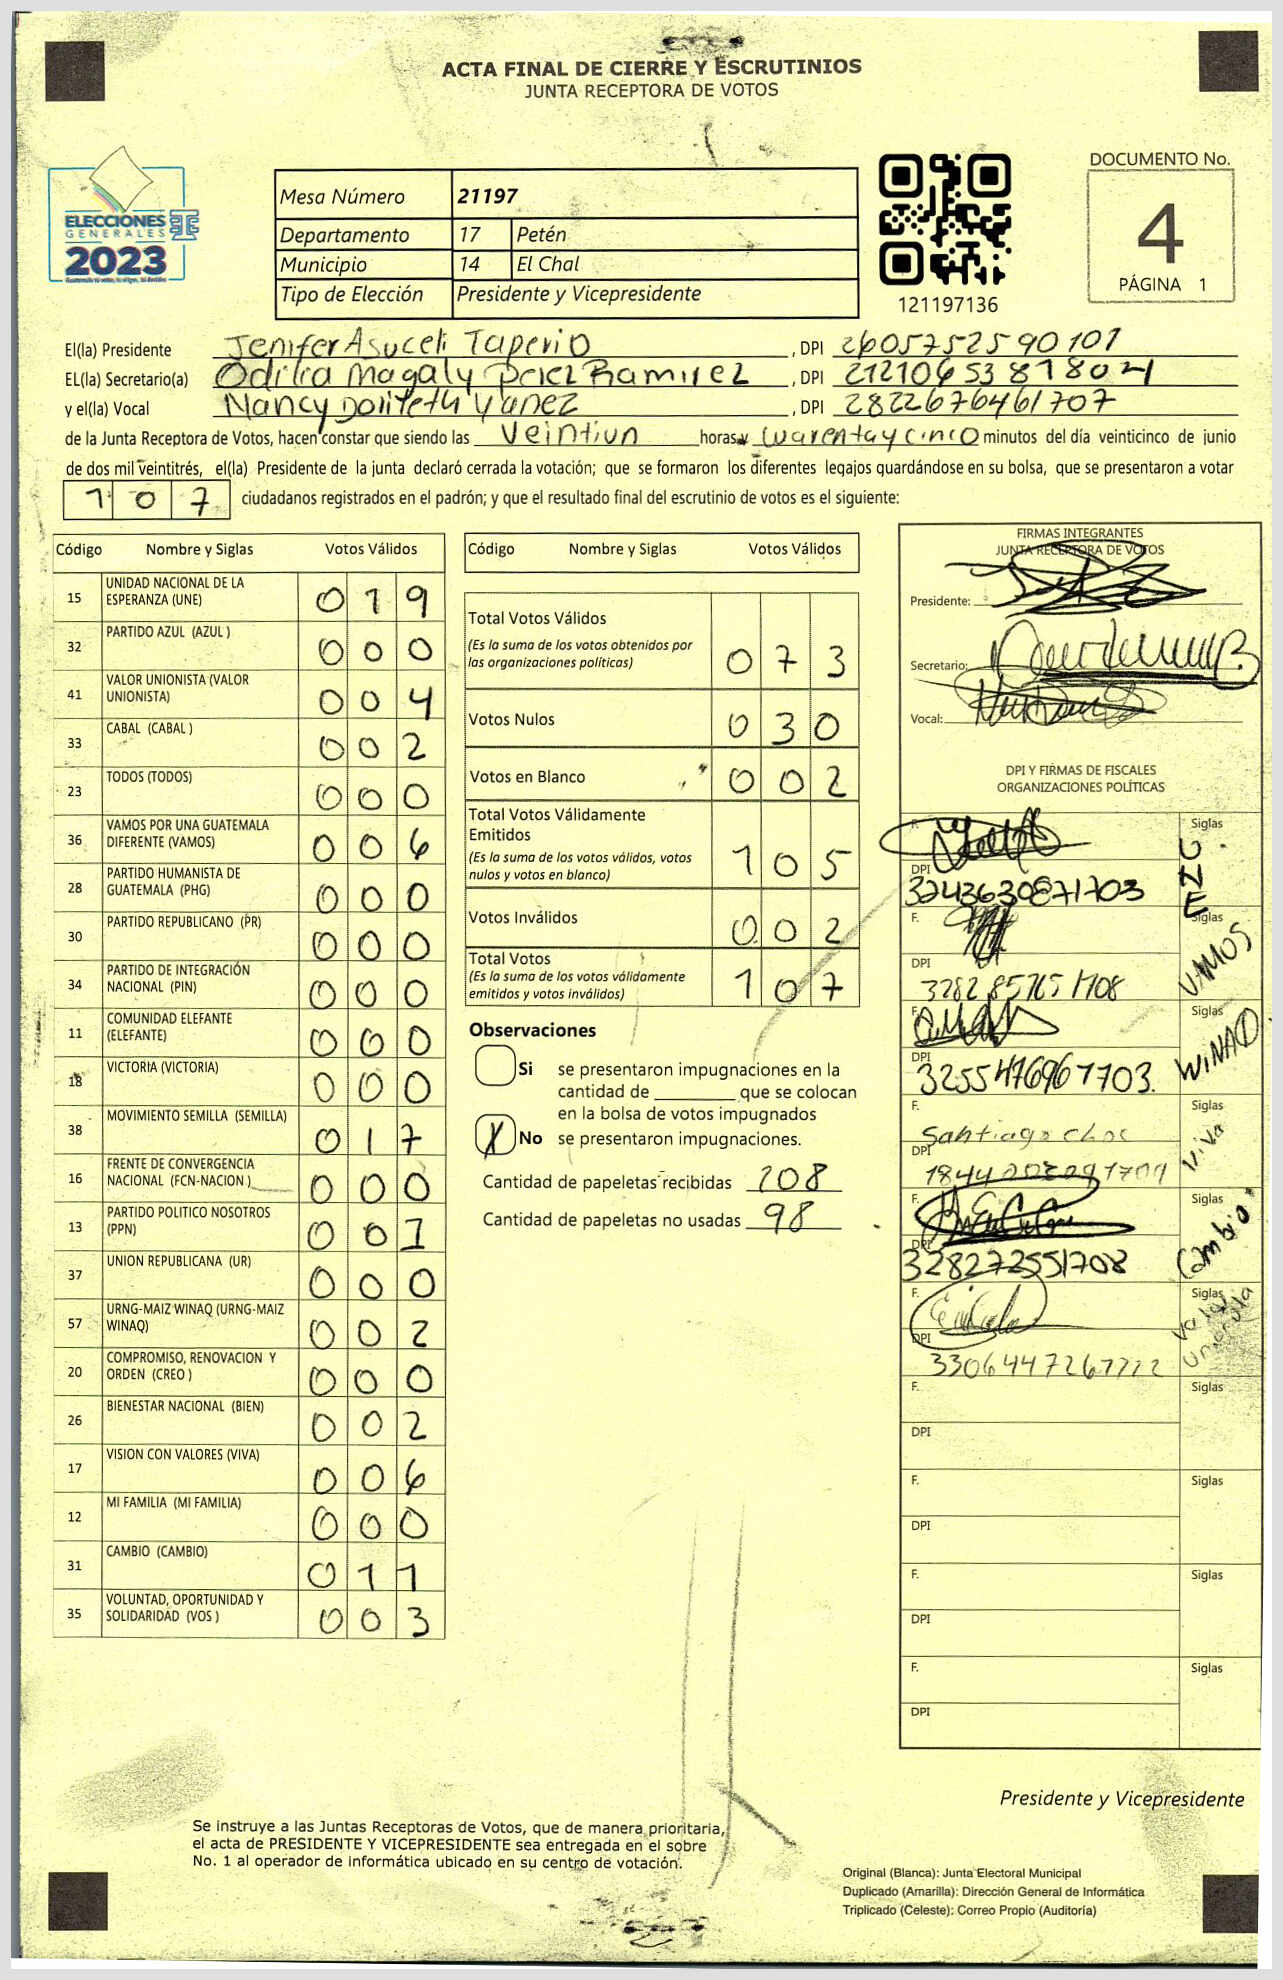 ACTA FINAL DE CIERRE Y ESCRUTINIOS
JUNTA RECEPTORA DE VOTOS
ELECCIONES
GENERALES
2023
Mesa Número 21197
Departamento 17 Petén
Municipio 14 El Chal
Tipo de Elección Presidente y Vicepresidente
121197136
DOCUMENTO No.
4
PÁGINA 1
El(la) Presidente Jenifer Asuceli Taperio , DPI 2605752590101
EL(la) Secretario(a) Odilia Magaly Ramirez , DPI
y el(la) Vocal Nancy Yanez , DPI 2822676461707
de la Junta Receptora de Votos, hacen constar que siendo las Veintiun horas y cuarentaycinco minutos del día veinticinco de junio
de dos mil veintitrés, el(la) Presidente de la junta declaró cerrada la votación; que se formaron los diferentes legajos guardándose en su bolsa, que se presentaron a votar
107 ciudadanos registrados en el padrón; y que el resultado final del escrutinio de votos es el siguiente:
Código Nombre y Siglas Votos Válidos
15 UNIDAD NACIONAL DE LA ESPERANZA (UNE) 019
32 PARTIDO AZUL (AZUL ) 000
41 VALOR UNIONISTA (VALOR UNIONISTA) 004
33 CABAL (CABAL ) 002
23 TODOS (TODOS) 000
36 VAMOS POR UNA GUATEMALA DIFERENTE (VAMOS) 006
28 PARTIDO HUMANISTA DE GUATEMALA (PHG) 000
30 PARTIDO REPUBLICANO (PR) 000
34 PARTIDO DE INTEGRACIÓN NACIONAL (PIN) 000
11 COMUNIDAD ELEFANTE (ELEFANTE) 000
18 VICTORIA (VICTORIA) 000
38 MOVIMIENTO SEMILLA (SEMILLA) 017
16 FRENTE DE CONVERGENCIA NACIONAL (FCN-NACION ) 000
13 PARTIDO POLITICO NOSOTROS (PPN) 001
37 UNION REPUBLICANA (UR) 000
57 URNG-MAIZ WINAQ (URNG-MAIZ WINAQ) 002
20 COMPROMISO, RENOVACION Y ORDEN (CREO ) 000
26 BIENESTAR NACIONAL (BIEN) 002
17 VISION CON VALORES (VIVA) 006
12 MI FAMILIA (MI FAMILIA) 000
31 CAMBIO (CAMBIO) 011
35 VOLUNTAD, OPORTUNIDAD Y SOLIDARIDAD (VOS ) 003
Código Nombre y Siglas Votos Válidos
Total Votos Válidos
(Es la suma de los votos obtenidos por
las organizaciones políticas) 073
Votos Nulos 030
Votos en Blanco 002
Total Votos Válidamente
Emitidos
(Es la suma de los votos válidos, votos
nulos y votos en blanco) 105
Votos Inválidos 002
Total Votos
(Es la suma de los votos válidamente
emitidos y votos inválidos) 107
Observaciones
Si se presentaron impugnaciones en la
cantidad de ________ que se colocan
en la bolsa de votos impugnados
X No se presentaron impugnaciones.
Cantidad de papeletas recibidas 208
Cantidad de papeletas no usadas 98
FIRMAS INTEGRANTES
JUNTA RECEPTORA DE VOTOS
Presidente:
Secretario:
Vocal:
DPI Y FIRMAS DE FISCALES
ORGANIZACIONES POLÍTICAS
F. Siglas UNE
DPI 3243630871703
F. Siglas VAMOS
DPI 3282857651708
F. Siglas WINAQ
DPI 3255476967703
F. Santiago Choc Siglas Viva
DPI
F. Siglas Cambio
DPI 328272551708
F. Siglas Valor Unionista
DPI
F. Siglas
DPI
F. Siglas
DPI
F. Siglas
DPI
F. Siglas
DPI
Presidente y Vicepresidente
Se instruye a las Juntas Receptoras de Votos, que de manera prioritaria,
el acta de PRESIDENTE Y VICEPRESIDENTE sea entregada en el sobre
No. 1 al operador de informática ubicado en su centro de votación.
Original (Blanca): Junta Electoral Municipal
Duplicado (Amarilla): Dirección General de Informática
Triplicado (Celeste): Correo Propio (Auditoría)